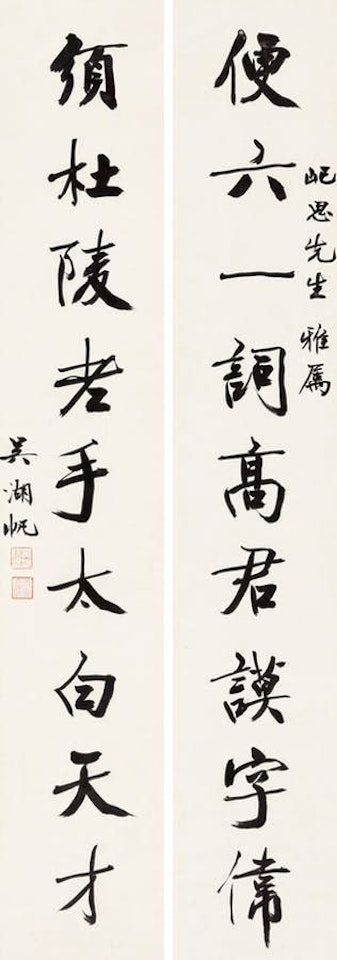 屺思先生 雅属
便六一詞高君謨字偉
須杜陵老手太白天才
吴湖帆